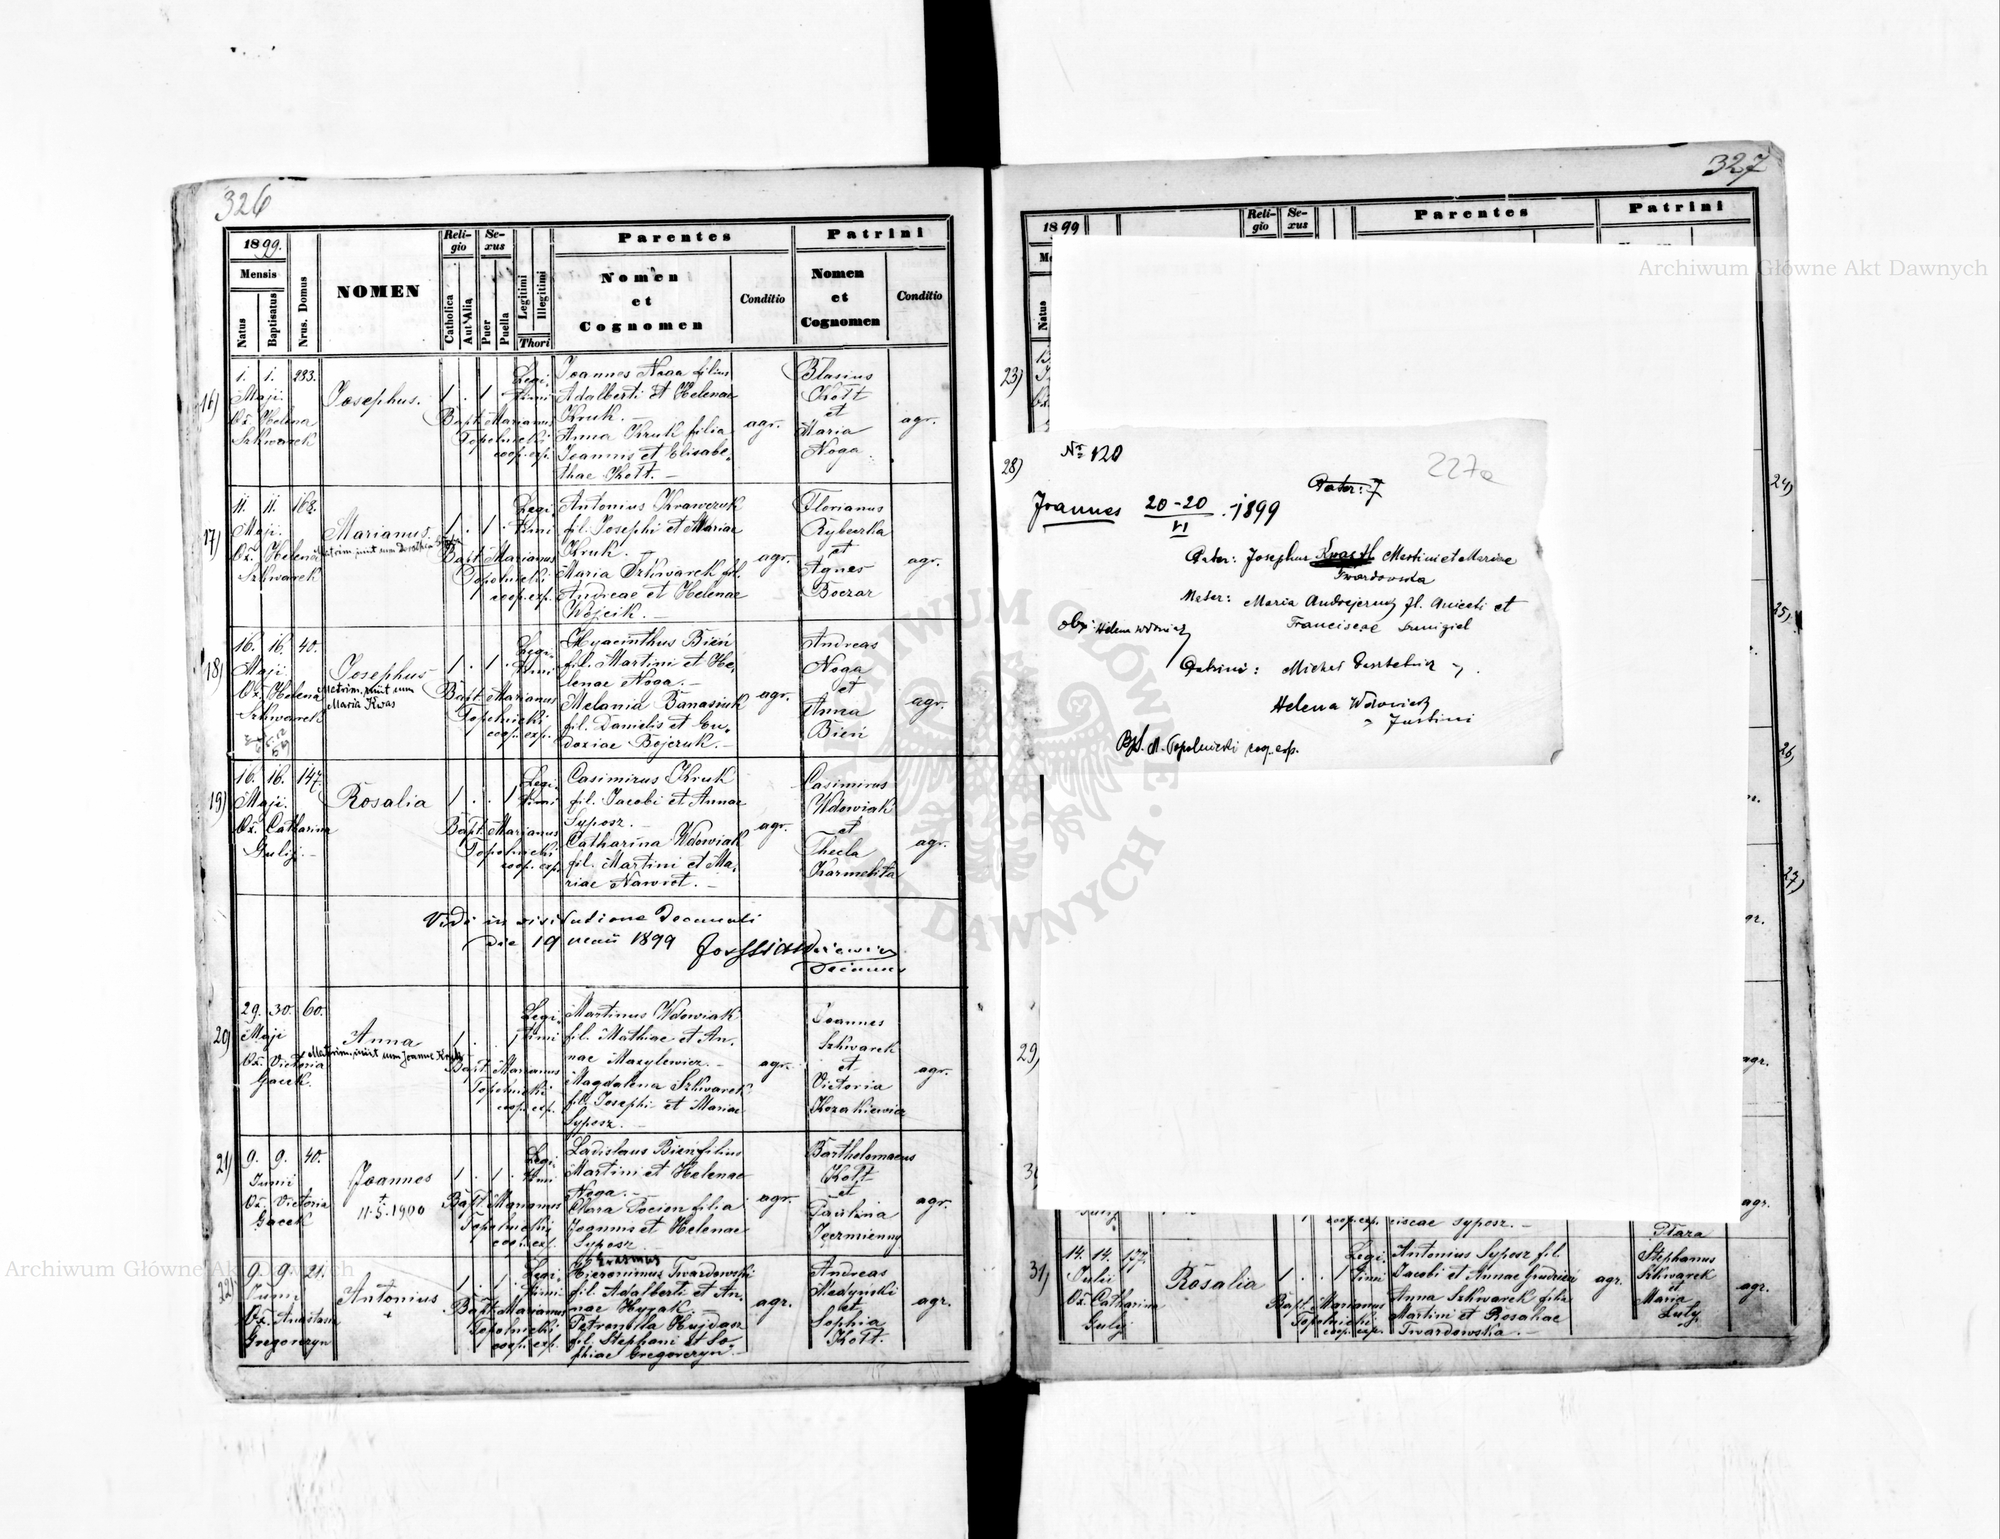 326
1899.
Mensis
Natus
Baptisatus
Nrus. Domus
NOMEN
Religio
Catholica
Aut Alia
Sexus
Puer
Puella
Legitimi
Illegitimi
Thori
Parentes
Nomen
et
Cognomen
Conditio
Patrini
Nomen
et
Cognomen
Conditio
16)
1. 1. 233.
Maji.
Ox. Helena
Szkwarek
Josephus.
1 . 1 .
Legi-
timi
Bapt. Marianus
Topolnicki
coop. exp.
Joannes Noga filius
Adalberti et Helenae
Kruk. —
Anna Kruk filia
Joannis et Elisabe-
thae Kott. —
agr.
Blasius
Kott
et
Maria
Noga.
agr.
17)
11. 11. 168.
Maji.
Ox. Helena
Szkwarek
Marianus.
1 . 1 .
Legi-
timi
Bapt. Marianus
Topolnicki
coop. exp.
Antonius Krawczuk
fil. Josephi et Mariae
Kruk. —
Maria Szkwarek fil.
Andreae et Helenae
Wojcik. —
agr.
Florianus
Rybeczka
et
Agnes
Boczar
agr.
18)
16. 16. 40.
Maji
Ox. Helena
Szkwarek
Josephus
Matrim. iniit cum
Maria Kwas
1 . 1 .
Legi-
timi
Bapt. Marianus
Topolnicki
coop. exp.
Hyacinthus Bień
fil. Martini et He-
lenae Noga. —
Melania Banasiuk
fil. Danielis et Eu-
doxiae Bojczuk. —
agr.
Andreas
Noga
et
Anna
Bień
agr.
19)
16. 16. 147.
Maji.
Ox. Catharina
Gulij —
Rosalia
1 . . 1
Legi-
timi
Bapt. Marianus
Topolnicki
coop. exp.
Casimirus Kruk
fil. Jacobi et Annae
Syposz. —
Catharina Wdowiak
fil. Martini et Ma-
riae Nawrot. —
agr.
Casimirus
Wdowiak
et
Thecla
Karmelita
agr.
Vidi in visitatione Decanali
die 19 maii 1899
Decanus
20)
29. 30. 60.
Maji
Ox. Victoria
Gacek.
Anna
Matrim. iniit cum Joanne
1 . . 1
Legi-
timi
Bapt. Marianus
Topolnicki
coop. exp.
Martinus Wdowiak
fil. Mathiae et An-
nae Mazylewicz. —
Magdalena Szkwarek
fil. Josephi et Mariae
Syposz. —
agr.
Joannes
Szkwarek
et
Victoria
Kozakiewicz
agr.
21)
9. 9. 40.
Junii
Ox. Victoria
Gacek
Joannes
+
11.5.1900
1 . 1 .
Legi-
timi
Bapt. Marianus
Topolnicki
coop. exp.
Ladislaus Bień filius
Martini et Helenae
Noga. —
Clara Pocion filia
Joannis et Helenae
Syposz
agr.
Bartholomaeus
Kott
et
Paulina
Jęczmienny
agr.
22)
9. 9. 21.
Junii
Ox. Anastasia
Gregorczyn
Antonius
+
1 . 1 .
Legi-
timi
Bapt. Marianus
Topolnicki
coop. exp.
Erasmus
Hieronimus Twardowski
fil. Adalberti et An-
nae Hyjak —
Petronela Hujdasz
fil. Stephani et So-
phiae Gregorczyn. —
agr.
Andreas
Medyński
et
Sophia
Kott.
agr.
327
1899
Natus
Religio
Sexus
Parentes
Patrini
23)
24)
25)
26)
27)
28)
29)
Nr 120
227a
Pater: J
Joannes 20-20 . 1899
VI
Pater: Josephus Kwas fl. Martini et Mariae
Twardowska
Mater: Maria Andrejczuk fl. Aniceti et
Franciscae
obx: Helena Wdowiak
Patrini:
Helena Wdowiak
Justini
Bpt. M. Topolnicki coop. exp.
ciscae Syposz. —
agr.
31)
14. 14. 157.
Julii
Ox. Catharina
Gulij
Rosalia
1 . . 1
Legi-
timi
Bapt. Marianus
Topolnicki
coop. exp.
Antonius Syposz fil.
Jacobi et Annae Grudzień
Anna Szkwarek filia
Martini et Rosaliae
Twardowska. —
agr.
Stephanus
Szkwarek
et
Maria
Luty.
agr.
Archiwum Główne Akt Dawnych
Archiwum Główne Akt Dawnych
ARCHIWUM GŁÓWNE AKT DAWNYCH